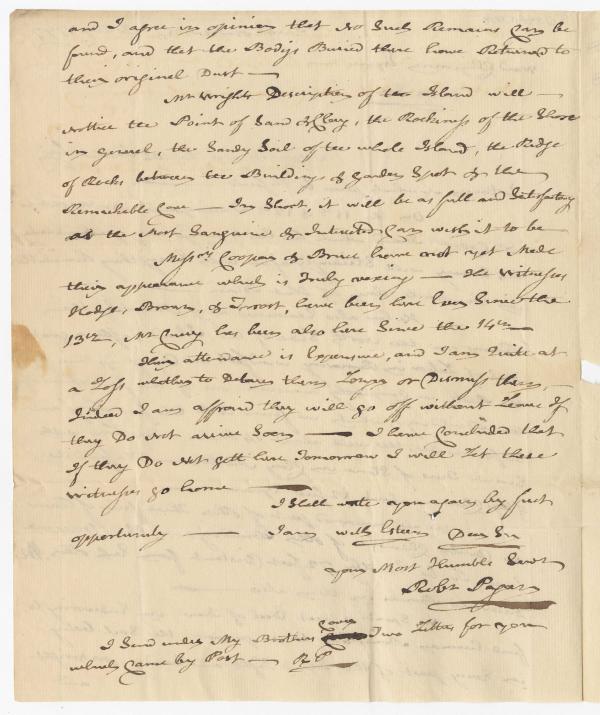 and I agree in opinion that no Such Remains Can be
found, and that the Bodys Buried there have Returned to
their original Dust —
Mr Wrights Description of the Island will —
Nottice the Point of Sand & Clay, the Rockiness of the Shore
in generel, the Sandy Soil of the whole Island, the Ridge
of Rocks between the Buildings & Garden Spot & the
Remarkable Cove — In Short, it will be as full and Satisfactory
as the Most Sanguine & Intrested Can wish it to be
Messrs Cooper & Brown have not yet Made
their appearance which is Truly vexing — The Witnesses
Hodges, Brown, & Frost, have been here Ever Since the
13th, Mr Curry has been also here Since the 14th
Their attendance is Expensive, and I am Quite at
a Loss whether to Detain them Longer or Dismiss them, —
Indeed I am affraid they will go off without Leave If
they Do Not arrive Soon — I have Concluded that
If they Do Not gett here Tomorrow I will Let these
Witnesses go home —
I Shall write you again by first
opportunity — I am with Esteem Dear Sir
your Most Humble Servt
Robt Pagan
I Send under My Brothers Cover Two Letters for you
which Came by Post — R P